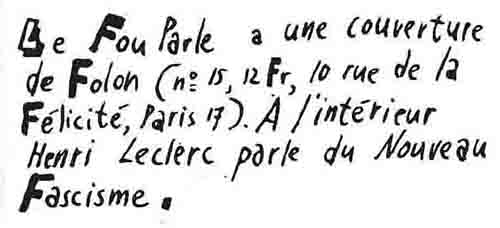 Le Fou Parle a une couverture
de Folon (nº 15, 12 Fr, 10 rue de la
Félicité, Paris 17). À l'intérieur
Henri Leclerc parle du Nouveau
Fascisme.